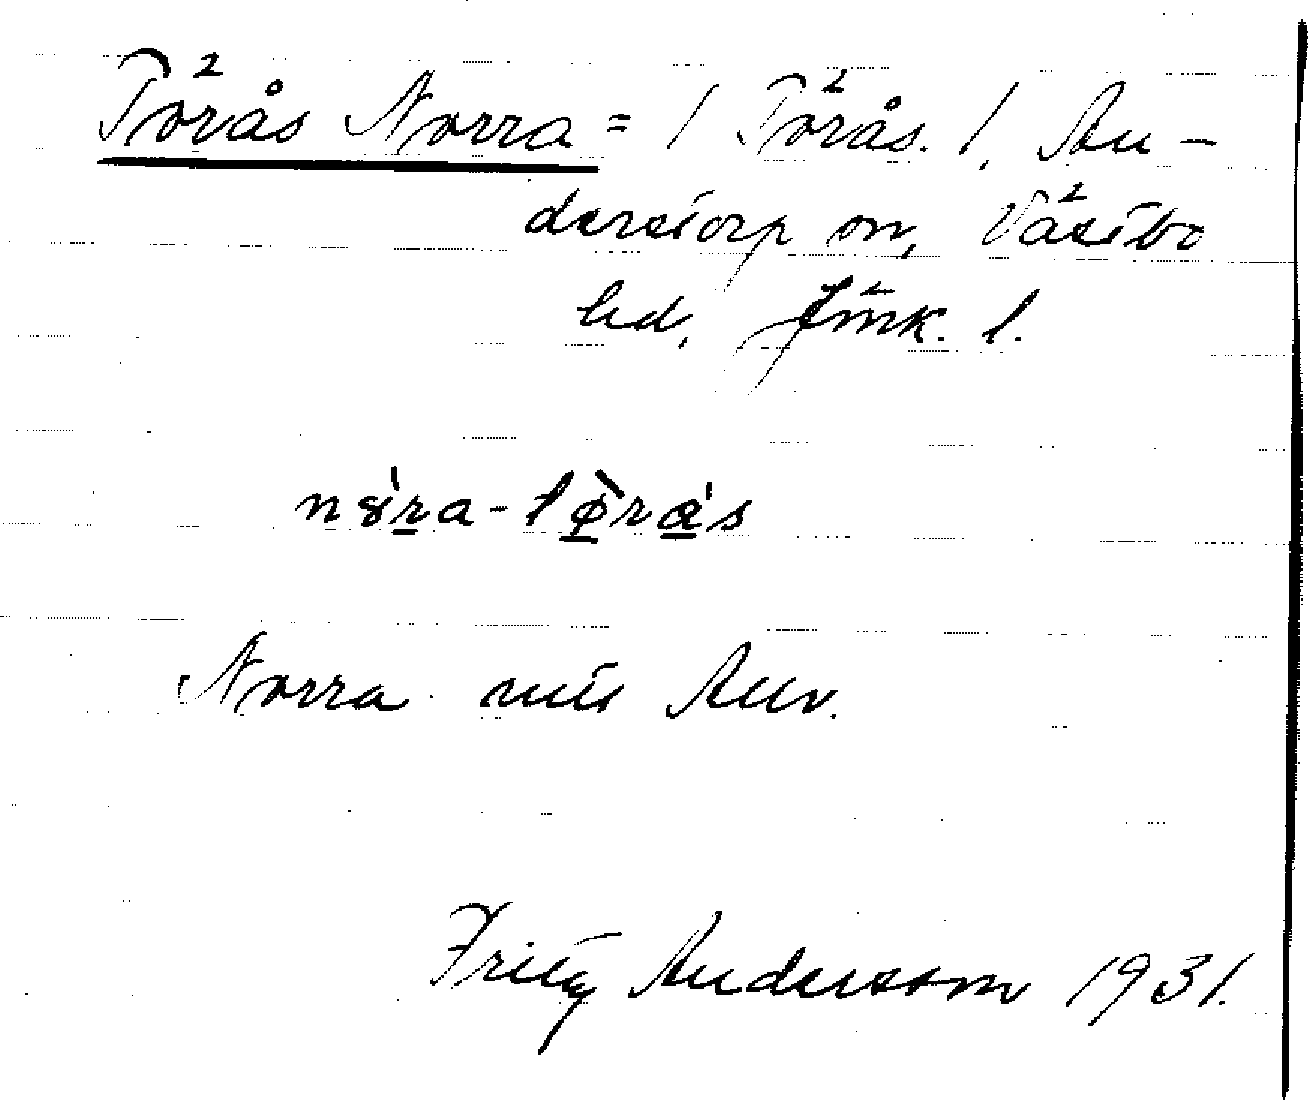 Törås Norra = / Törås. 1. An-
derstorp sn, Västbo
hd, Jönk. l.
nɤ̀ra-tø̀rås
Norra utt. Anv.
Fritz Andersson 1931.